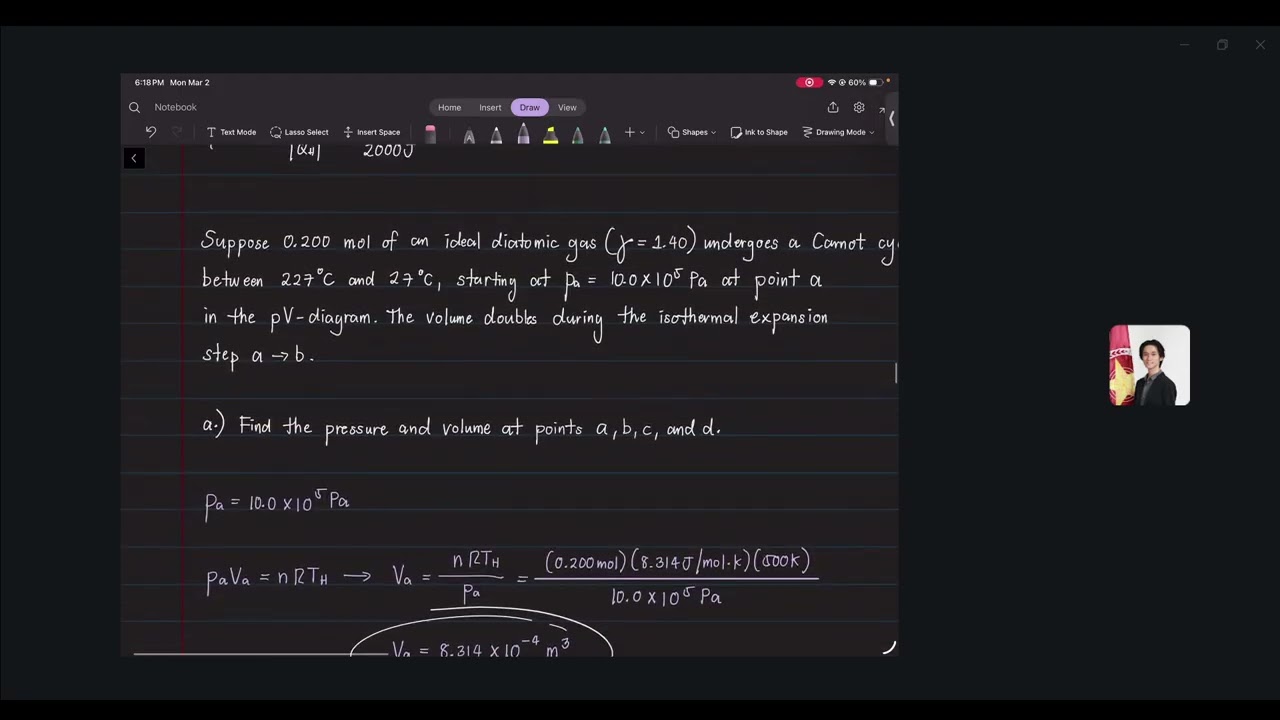 6:18 PM Mon Mar 2
60%
Notebook
Home Insert Draw View
Text Mode Lasso Select Insert Space Shapes Ink to Shape Drawing Mode
|QH| 2000J
Suppose 0.200 mol of an ideal diatomic gas (γ = 1.40) undergoes a Carnot cy
between 227°C and 27°C, starting at pa = 10.0 × 10⁵ Pa at point a
in the pV-diagram. The volume doubles during the isothermal expansion
step a → b.
a.) Find the pressure and volume at points a, b, c, and d.
pa = 10.0 × 10⁵ Pa
paVa = nRTH → Va = nRTH / pa = (0.200 mol)(8.314 J/mol·K)(500K) / 10.0 × 10⁵ Pa
Va = 8.314 × 10⁻⁴ m³